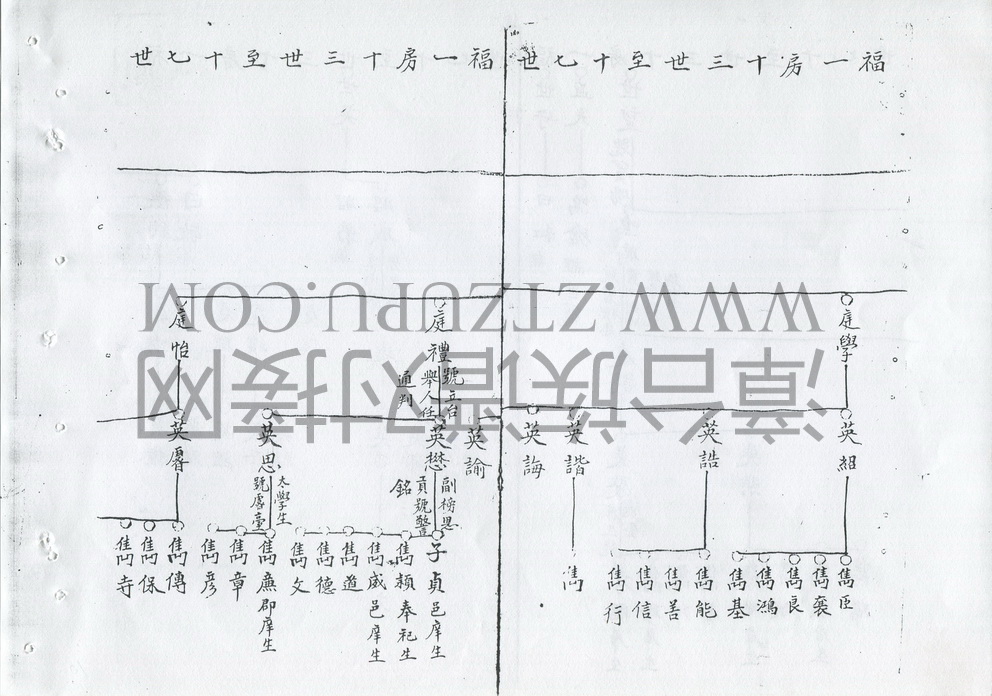 福一房十三世至十七世
庭學
英組
英誥
英諧
英誨
雋臣
雋褒
雋良
雋鴻
雋基
雋能
雋善
雋信
雋行
雋
福一房十三世至十七世
庭禮號立台
舉人任
通判
庭怡
英諭
英懋副榜恩
貢號警
銘
英思太學生
號慮臺
英睿
子貞邑庠生
雋頴奉祀生
雋咸邑庠生
雋進
雋德
雋文
雋廉郡庠生
雋章
雋彦
雋傳
雋保
雋寺
WWW.ZTZUPU.COM
漳台族谱对接网